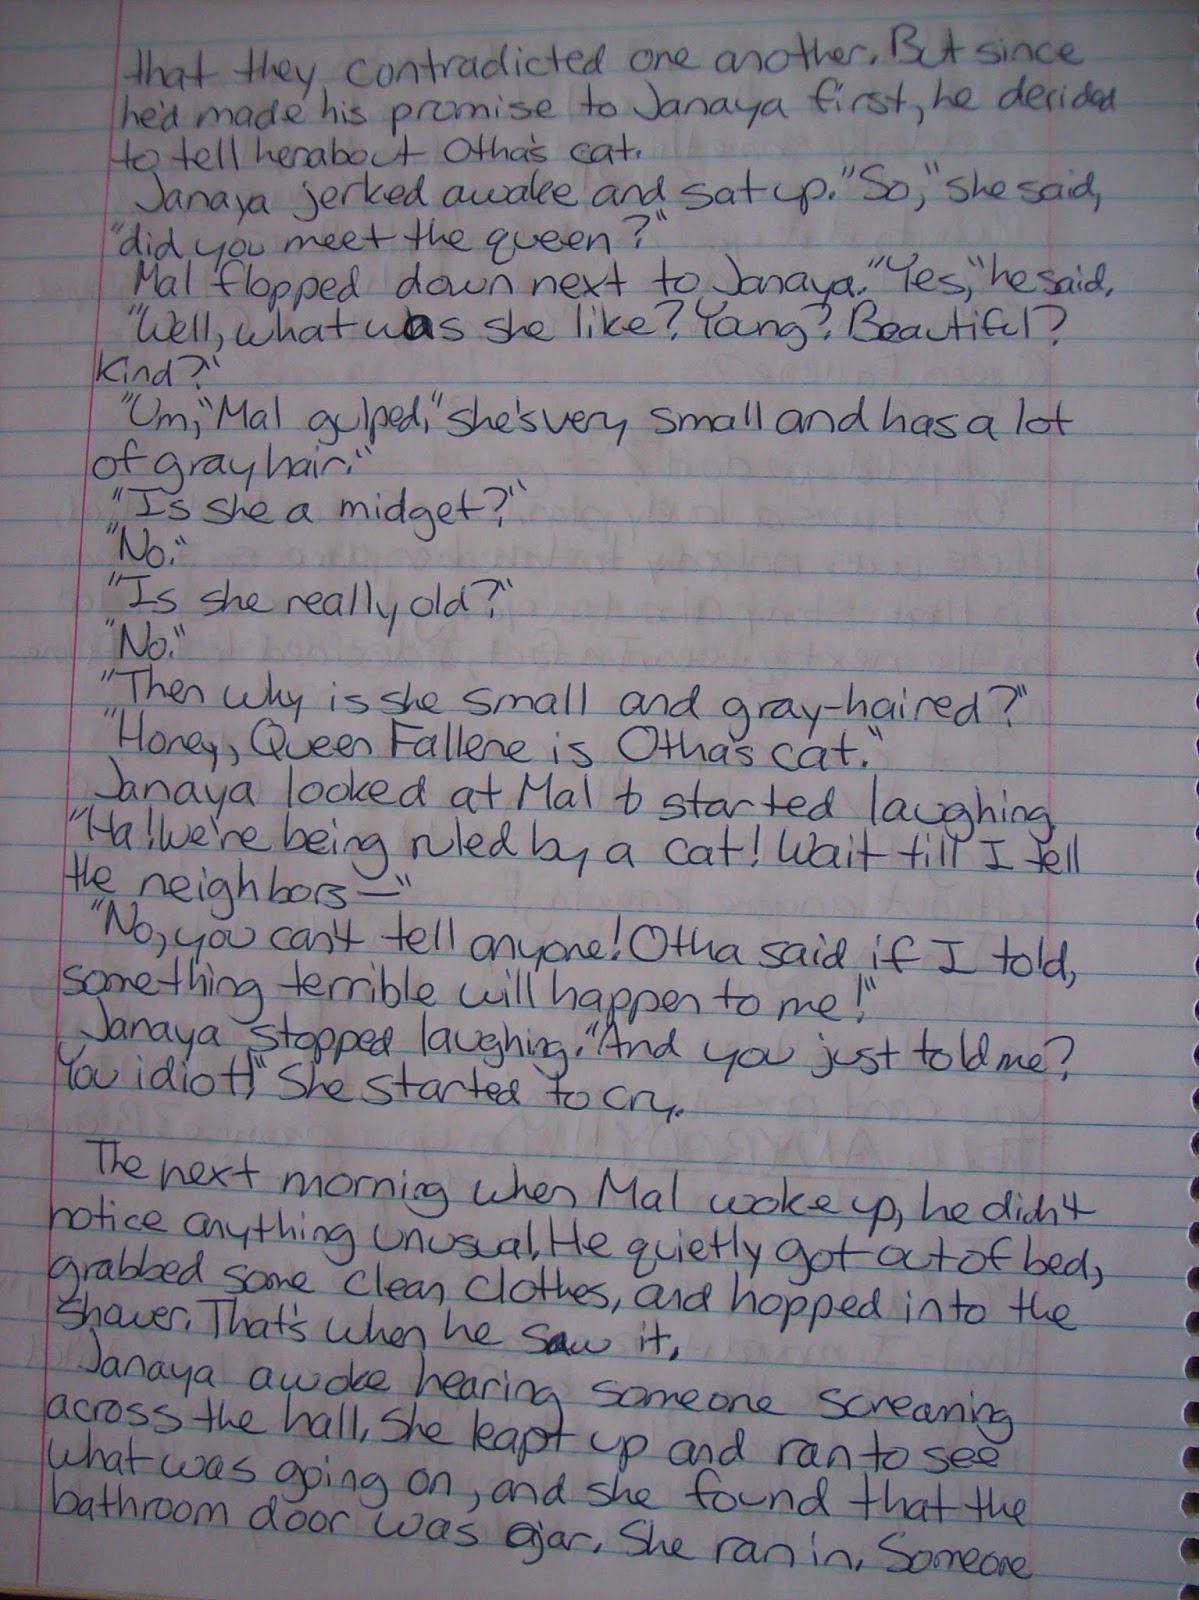 that they contradicted one another. But since
he'd made his promise to Janaya first, he decided
to tell her about Otha's cat.
Janaya jerked awake and sat up. "So," she said,
"did you meet the queen?"
Mal flopped down next to Janaya. "Yes," he said.
"Well, what was she like? Young? Beautiful?
Kind?"
"Um," Mal gulped, "she's very small and has a lot
of gray hair."
"Is she a midget?"
"No."
"Is she really old?"
"No."
"Then why is she small and gray-haired?"
"Honey, Queen Fallene is Otha's cat."
Janaya looked at Mal & started laughing.
"Ha! We're being ruled by a cat! Wait till I tell
the neighbors—"
"No, you can't tell anyone! Otha said if I told,
something terrible will happen to me!"
Janaya stopped laughing. "And you just told me?
You idiot!" She started to cry.
The next morning when Mal woke up, he didn't
notice anything unusual. He quietly got out of bed,
grabbed some clean clothes, and hopped into the
shower. That's when he saw it.
Janaya awoke hearing someone screaming
across the hall. She leapt up and ran to see
what was going on, and she found that the
bathroom door was ajar. She ran in. Someone